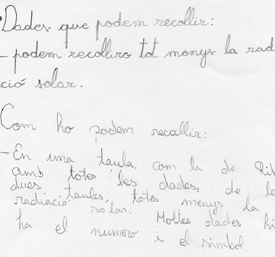 Dades que podem recollir:
- podem recolliro tot menys la rad
ció solar.
Com ho podem recallir:
- En una taula, com la de Rib
amb totes les dades, de le
dues taules, totes menys la
radiació solar. Moltes dades hi
ha el numero i el símbol